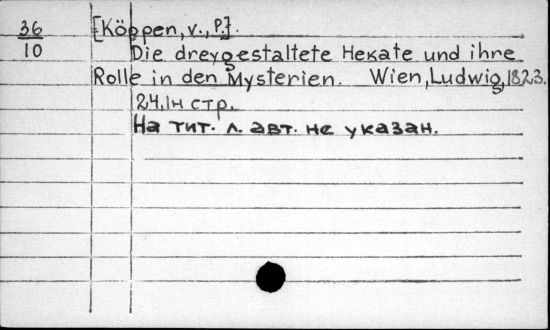 36
10
[Köppen, v., P.].
Die dreygestaltete Hekate und ihre
Rolle in den Mysterien. Wien, Ludwig, 1823.
24, 1н стр.
На тит. л. авт. не указан.